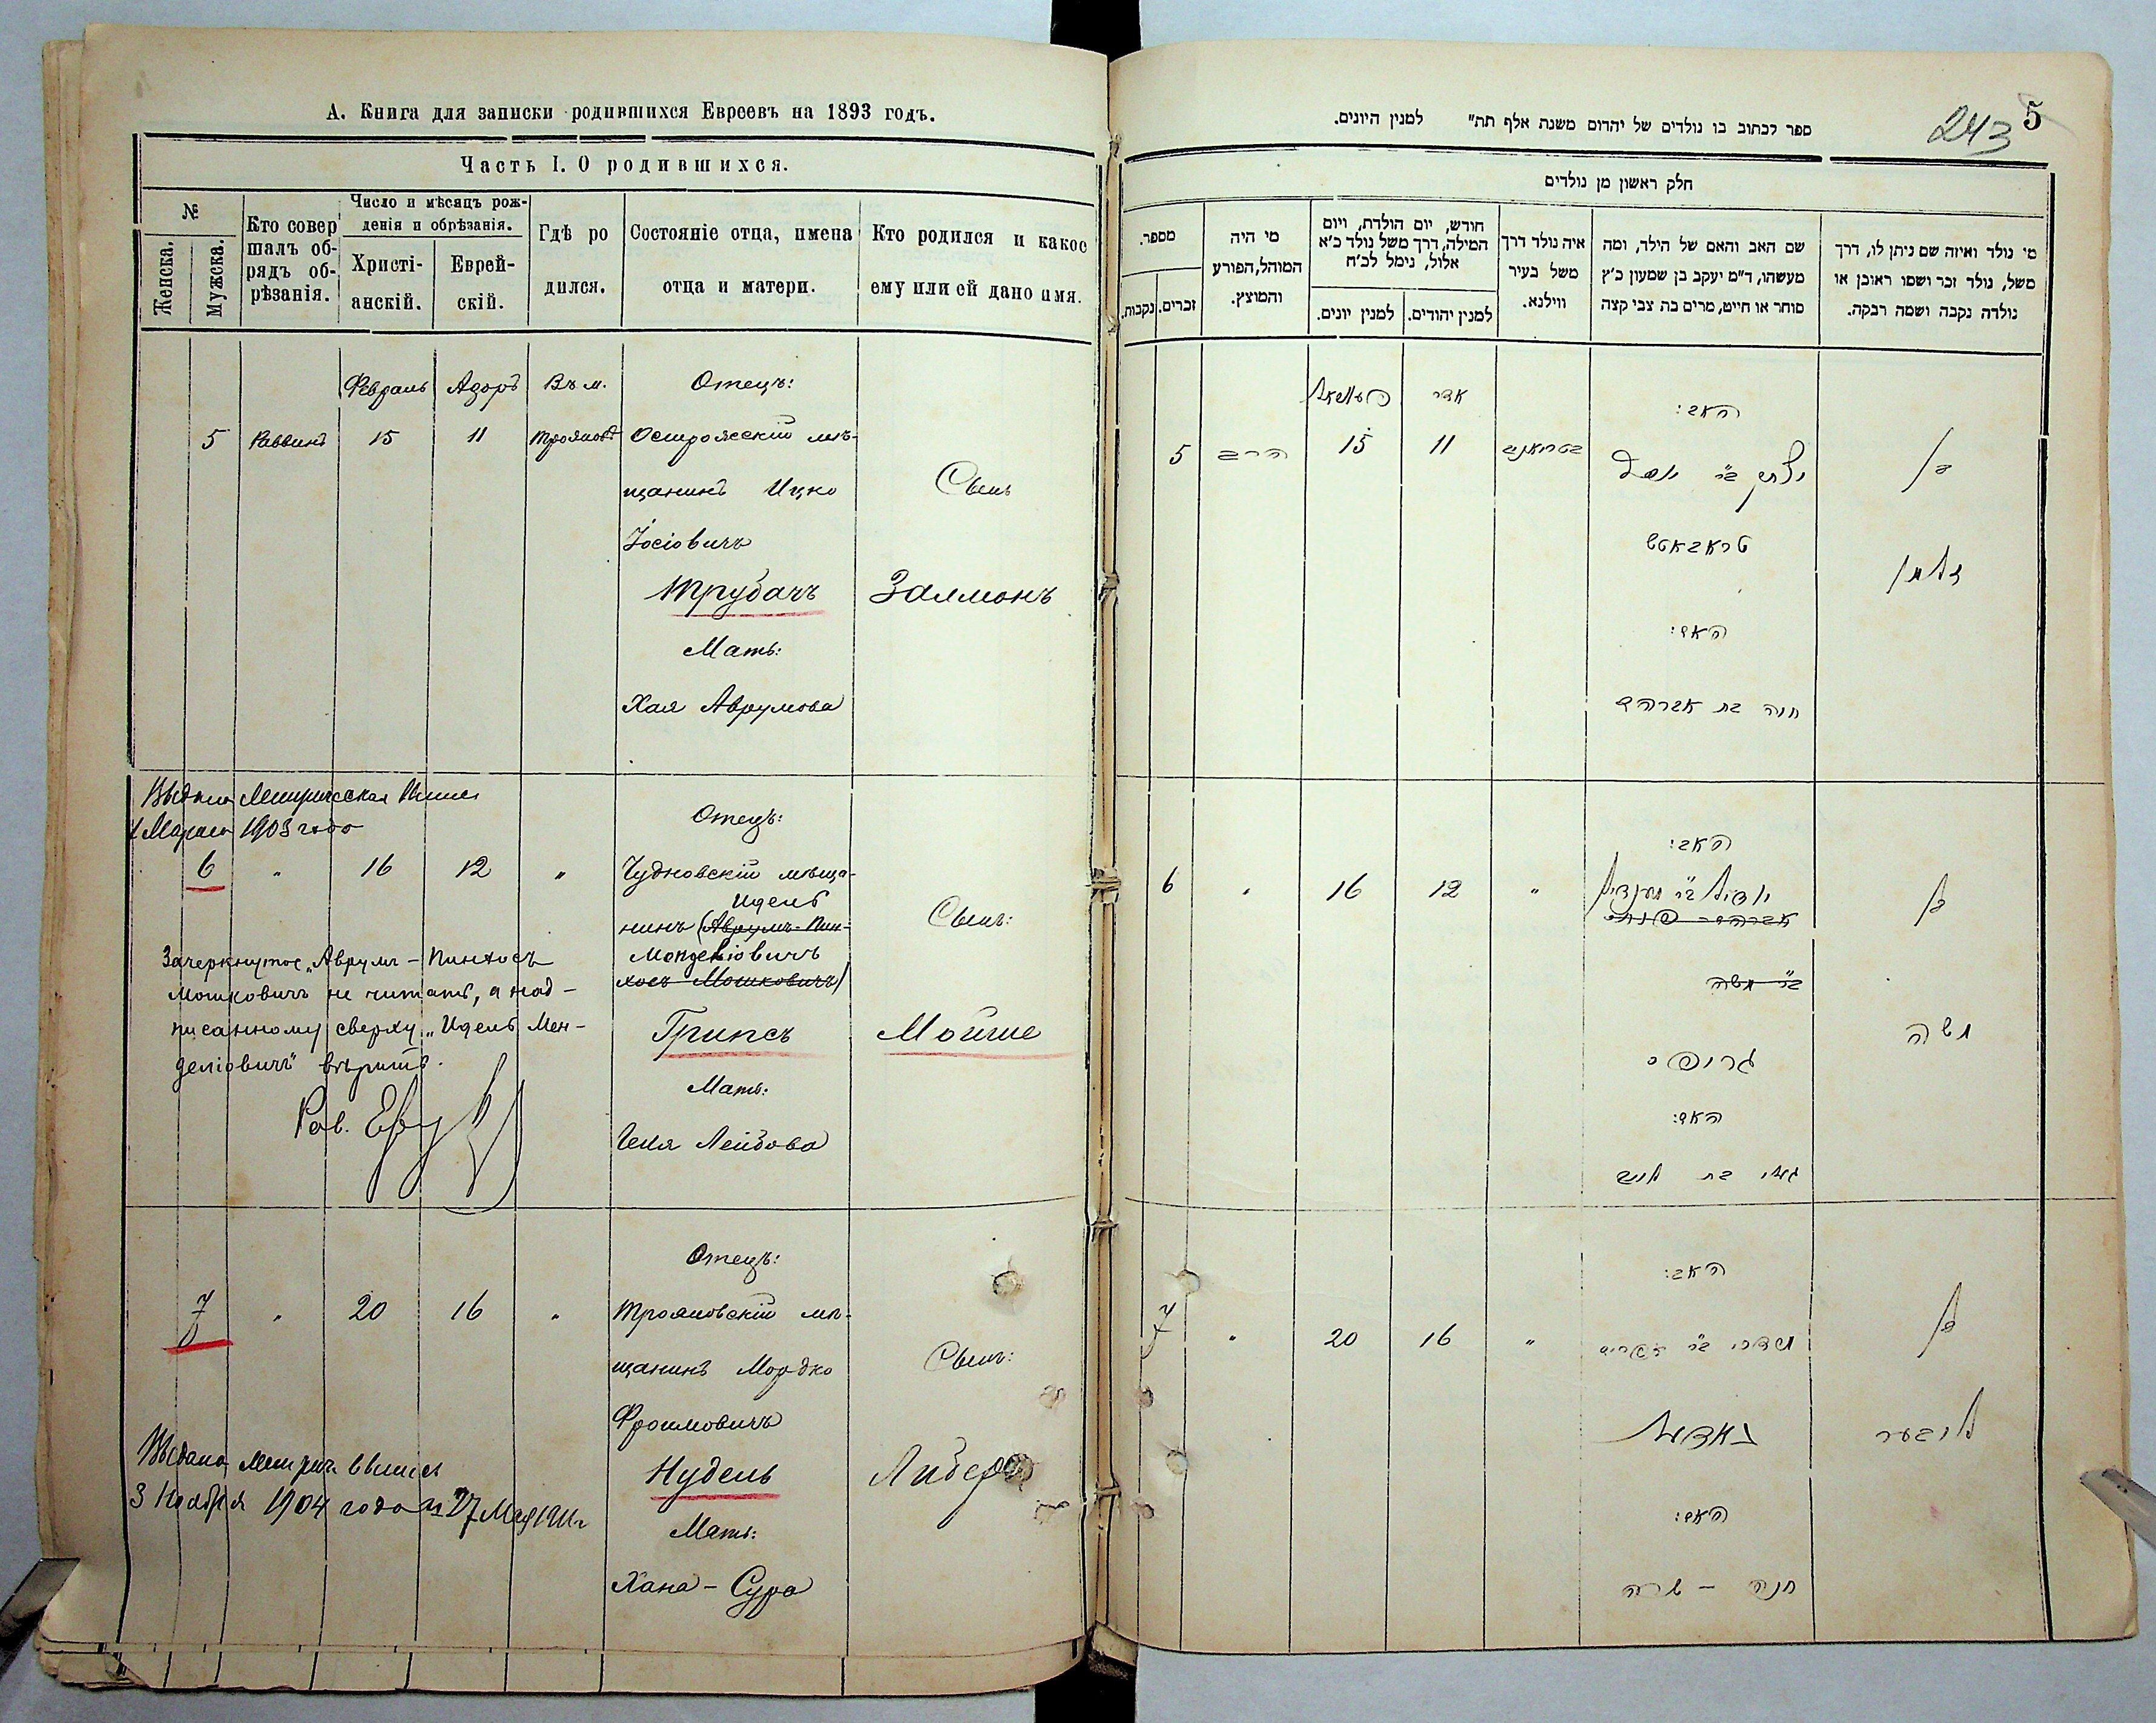 А. Книга для записки родившихся Евреевъ на 1893 годъ.
Часть I. О родившихся.
№
Женска.
Мужска.
Кто совер
шалъ об-
рядъ об-
рѣзанія.
Число и мѣсяцъ рож-
денія и обрѣзанія.
Христі-
анскій.
Еврей-
скій.
Гдѣ ро
дился.
Состояніе отца, имена
отца и матери.
Кто родился и какое
ему или ей дано имя.
Февраль Адоръ Въ м. Отецъ:
5 Раввинъ 15 11 Трояновѣ Острожскій мѣ-
щанинъ Ицко Сынъ
Іосіовичъ
Трубачъ Залмонъ
Мать:
Хая Аврумова
Выдана Метрическая
Марта 1903 года
Отецъ:
6 " 16 12 " Чудновскій мѣща-
Идель
нинъ (Аврумъ-Пин- Сынъ:
Мопделіовичъ
хосъ Мошковичъ)
Зачеркнутое „Аврумъ-Пинхосъ
Мошковичъ не читать, а над-
писанному сверху „Идель Мен-
деліовичъ" вѣрить.
Рав.
Грипсъ Мойше
Мать:
Геня Лейбова
Отецъ:
7 " 20 16 " Трояновскій мѣ-
щанинъ Мордко Сынъ:
Фроимовичъ
Нудель Либер
Выдана метрич.
3 Ноября 1904 года и 27 Мая 1911 г
Мать:
Хана - Сура
243 5
ספר לכתוב בו נולדים של יהדום משנת אלף תת" למנין היונים.
חלק ראשון מן נולדים
מי נולד ואיזה שם ניתן לו, דרך
משל, נולד זכר ושמו ראובן או
נולדה נקבה ושמה רבקה.
שם האב והאם של הילד, ומה
מעשהו, ד"מ יעקב בן שמעון כ'ץ
סוחר או חייט, מרים בת צבי קצה
איה נולד דרך
משל בעיר
ווילנא.
חודש, יום הולדת, ויום
המילה, דרך משל נולד כ'א
אלול, נימל לכ'ח
למנין יהודים.
למנין יונים.
מי היה
המוהל, הפורע
והמוצץ.
מספר.
זכרים.
נקבות.
האב: אדר
בן 11 15 הרב 5
יצחק ב"ר יוסף
טראבאטש
זלמן
האם:
חיה בת אברהם
האב:
בן יודיל ב"ר מענדיל " 12 16 " 6
אברהם פנחס
ב"ר משה
משה
גריפס
האם:
בת
האב:
בן מרדכי ב"ר אפרים " 16 20 " 7
ליבער נאדיל
האם:
חנה - שרה